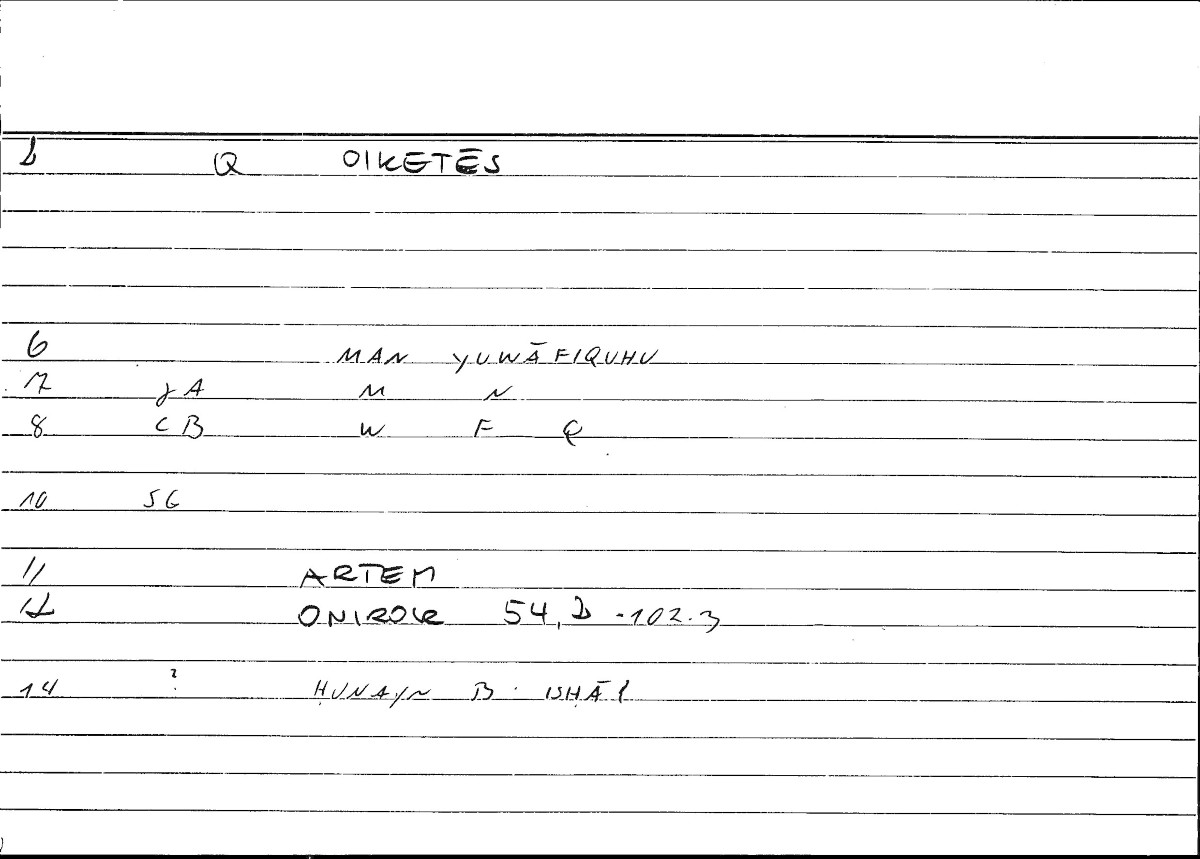 Q OIKETĒS
6 MAN YUWĀFIQUHU
7 γA M N
8 CB W F Q
10 SG
11 ARTEM
12 ONIROK 54,2-102.3
14 ? ḤUNAYN B. ISḤĀQ